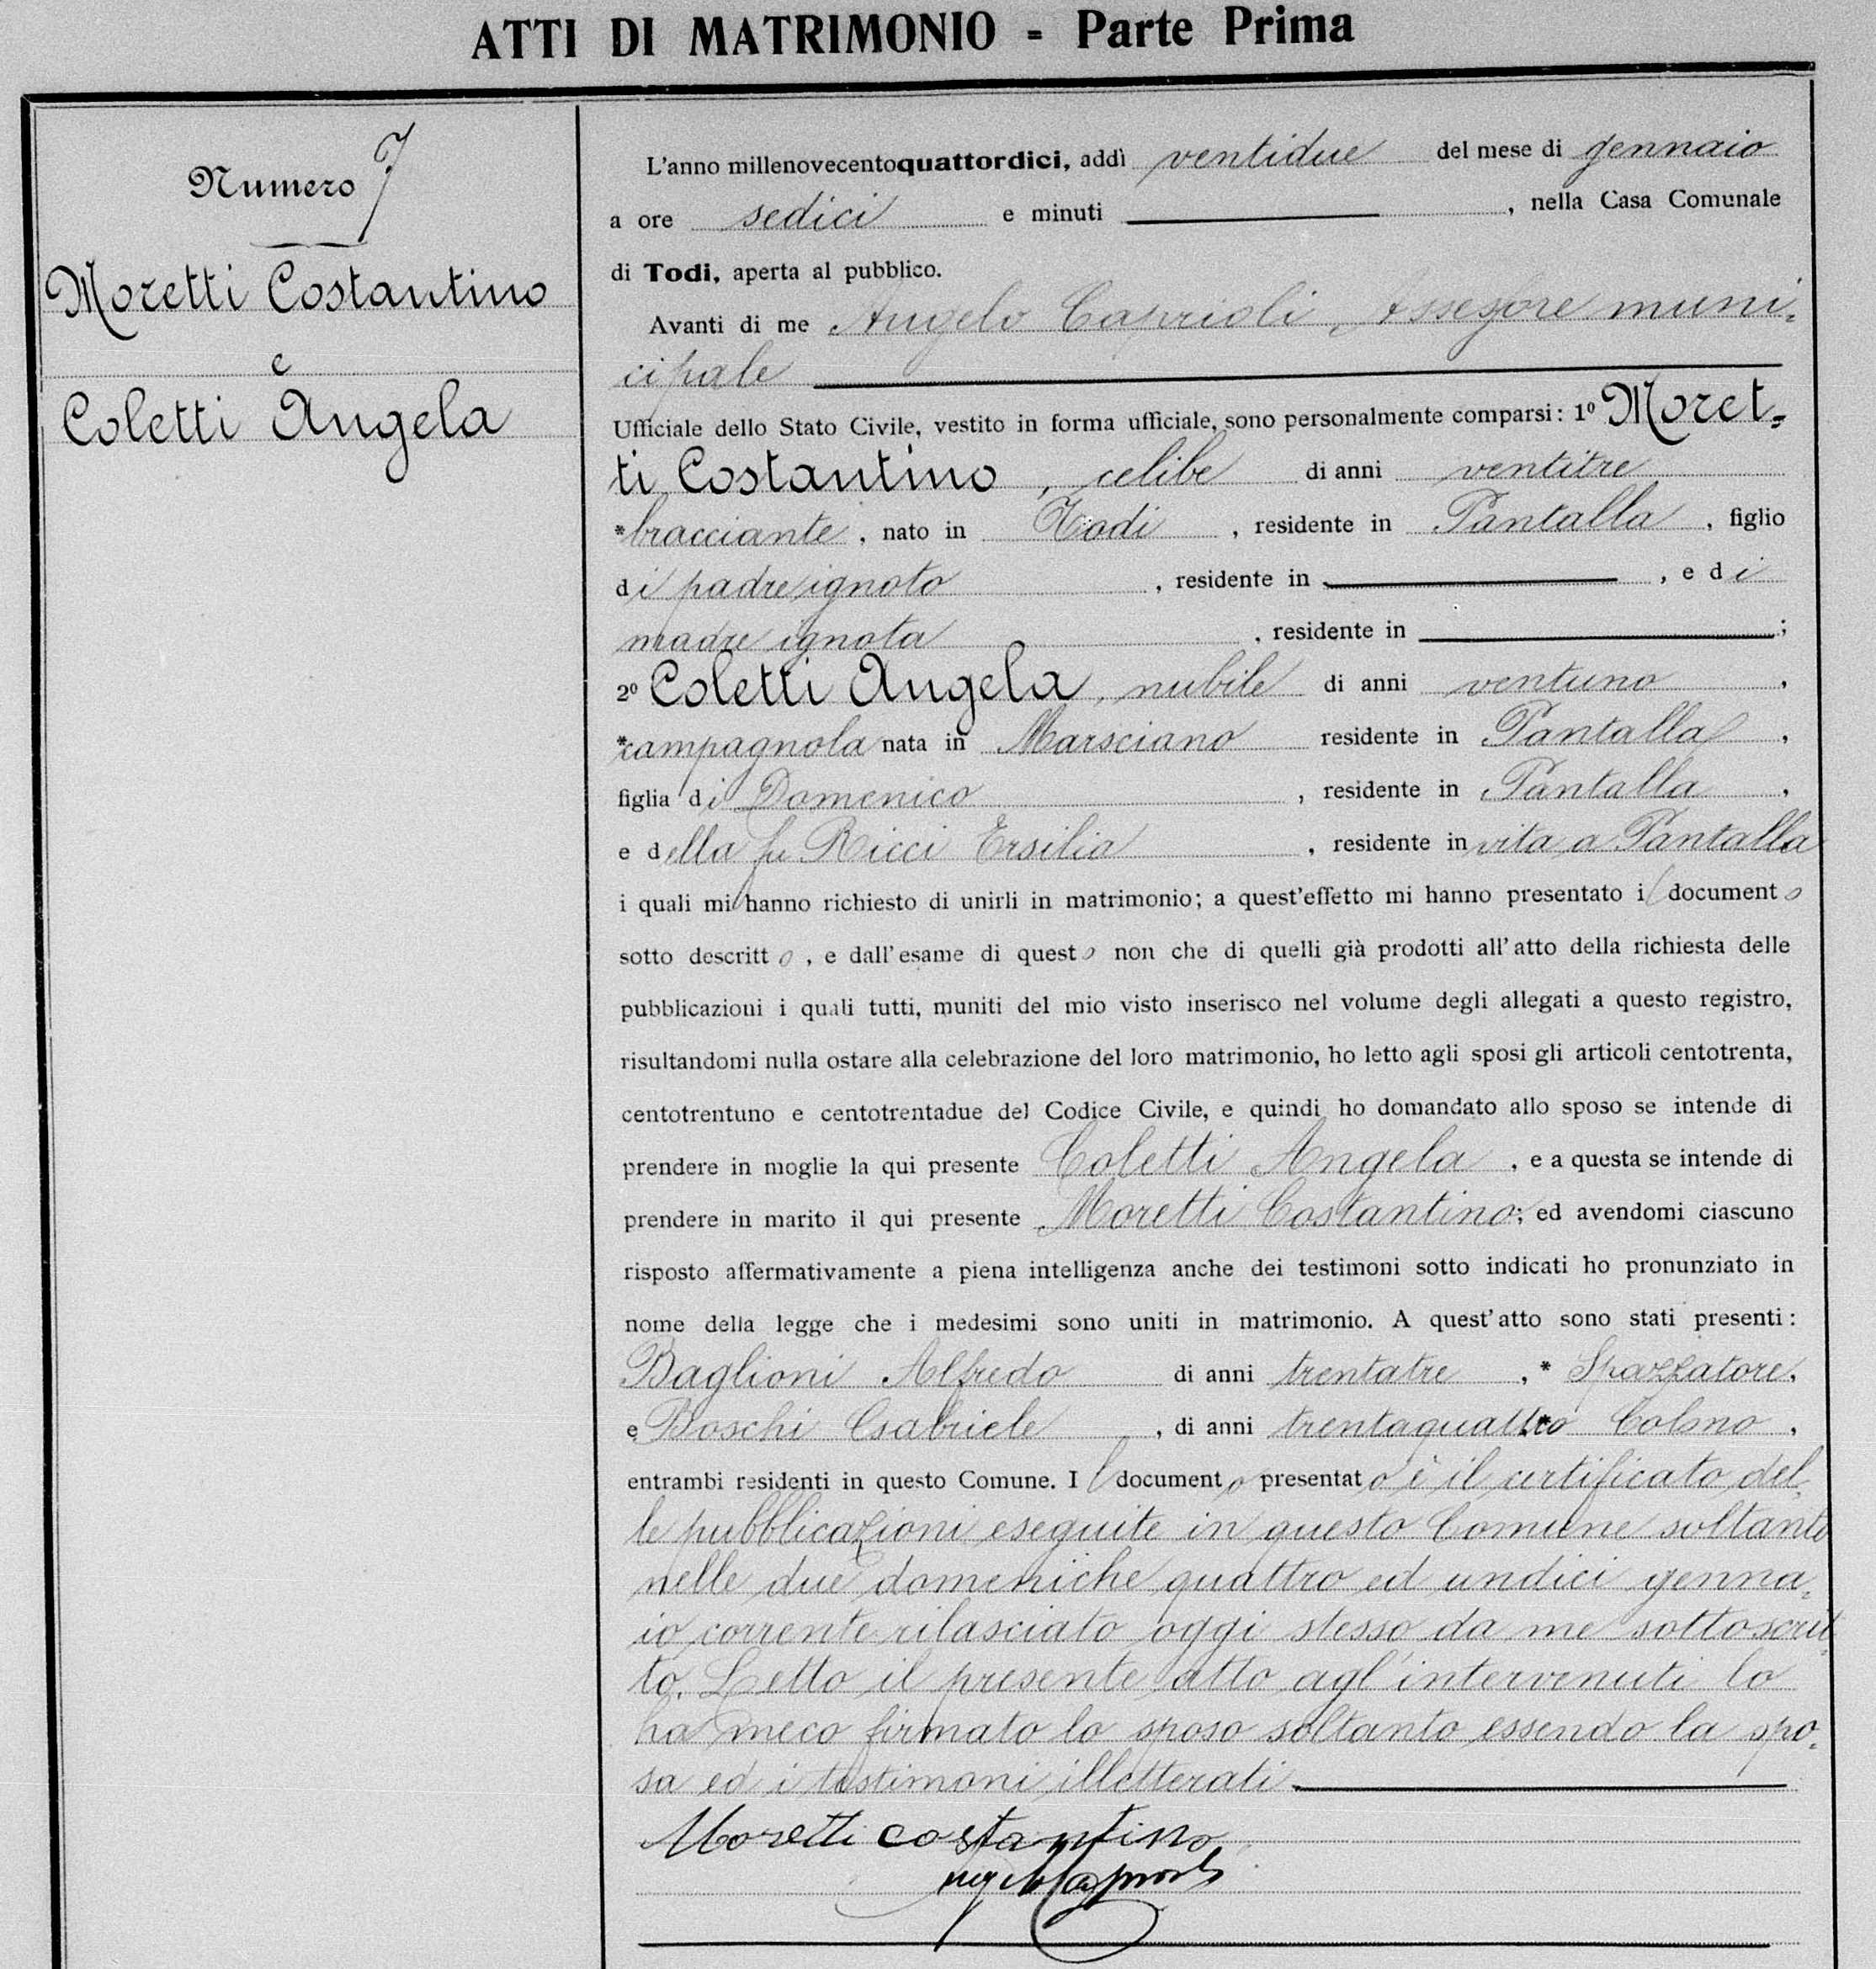 ATTI DI MATRIMONIO - Parte Prima
Numero 7
Moretti Costantino
e
Coletti Angela
L'anno millenovecentoquattordici, addì ventidue del mese di gennaio
a ore sedici e minuti , nella Casa Comunale
di Todi, aperta al pubblico.
Avanti di me Angelo Caprioli, Assessore muni=
cipale
Ufficiale dello Stato Civile, vestito in forma ufficiale, sono personalmente comparsi: 1º Moret=
ti Costantino, celibe di anni ventitre
*bracciante, nato in Todi, residente in Pantalla, figlio
di padre ignoto, residente in , e di
madre ignota, residente in ;
2º Coletti Angela, nubile di anni ventuno,
*campagnola nata in Marsciano residente in Pantalla,
figlia di Domenico, residente in Pantalla,
e della fu Ricci Ersilia, residente in vita a Pantalla
i quali mi hanno richiesto di unirli in matrimonio; a quest'effetto mi hanno presentato il documento
sotto descritto, e dall'esame di questo non che di quelli già prodotti all'atto della richiesta delle
pubblicazioni i quali tutti, muniti del mio visto inserisco nel volume degli allegati a questo registro,
risultandomi nulla ostare alla celebrazione del loro matrimonio, ho letto agli sposi gli articoli centotrenta,
centotrentuno e centotrentadue del Codice Civile, e quindi ho domandato allo sposo se intende di
prendere in moglie la qui presente Coletti Angela, e a questa se intende di
prendere in marito il qui presente Moretti Costantino; ed avendomi ciascuno
risposto affermativamente a piena intelligenza anche dei testimoni sotto indicati ho pronunziato in
nome della legge che i medesimi sono uniti in matrimonio. A quest'atto sono stati presenti:
Baglioni Alfredo di anni trentatre, * Spazzatore,
e Boschi Gabriele, di anni trentaquattro Colono,
entrambi residenti in questo Comune. Il documento presentato è il certificato del=
le pubblicazioni eseguite in questo Comune soltanto
nelle due domeniche quattro ed undici genna=
io corrente rilasciato oggi stesso da me sottoscrit
to. Letto il presente atto agl'intervenuti lo
ha meco firmato lo sposo soltanto essendo la spo=
sa ed i testimoni illetterati
Moretti costantino
Angelo Caprioli